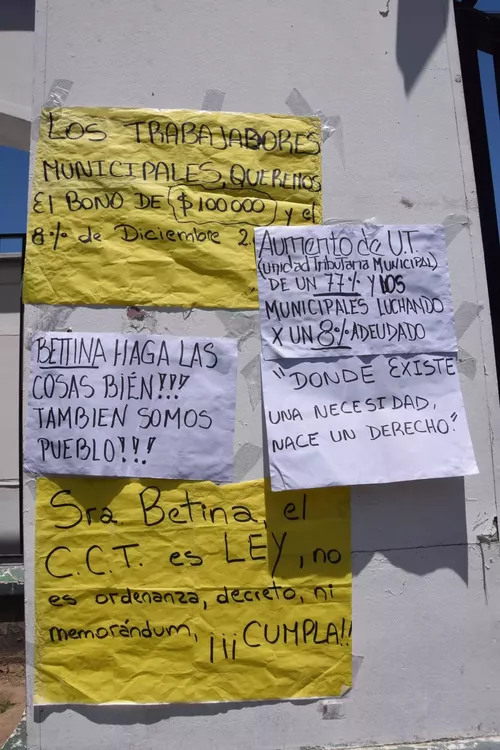 LOS TRABAJABORES
MUNICIPALES, QUEREMOS
El BONO DE $100000 y el
8% de Diciembre 2.
AUMENTO de U.T.
(UNIDAD TRIBUTARIA MUNICIPAL)
DE UN 77% Y LOS
MUNICIPALES LUCHANDO
X UN 8% ADEUDADO
"DONDE EXISTE
UNA NECESIDAD,
NACE UN DERECHO"
BETTINA HAGA LAS
COSAS BIÉN!!!
TAMBIEN SOMOS
PUEBLO!!!
Sra Betina, el
C.C.T. es LEY, no
es ordenanza, decreto, ni
memorándum,
¡¡¡CUMPLA!!